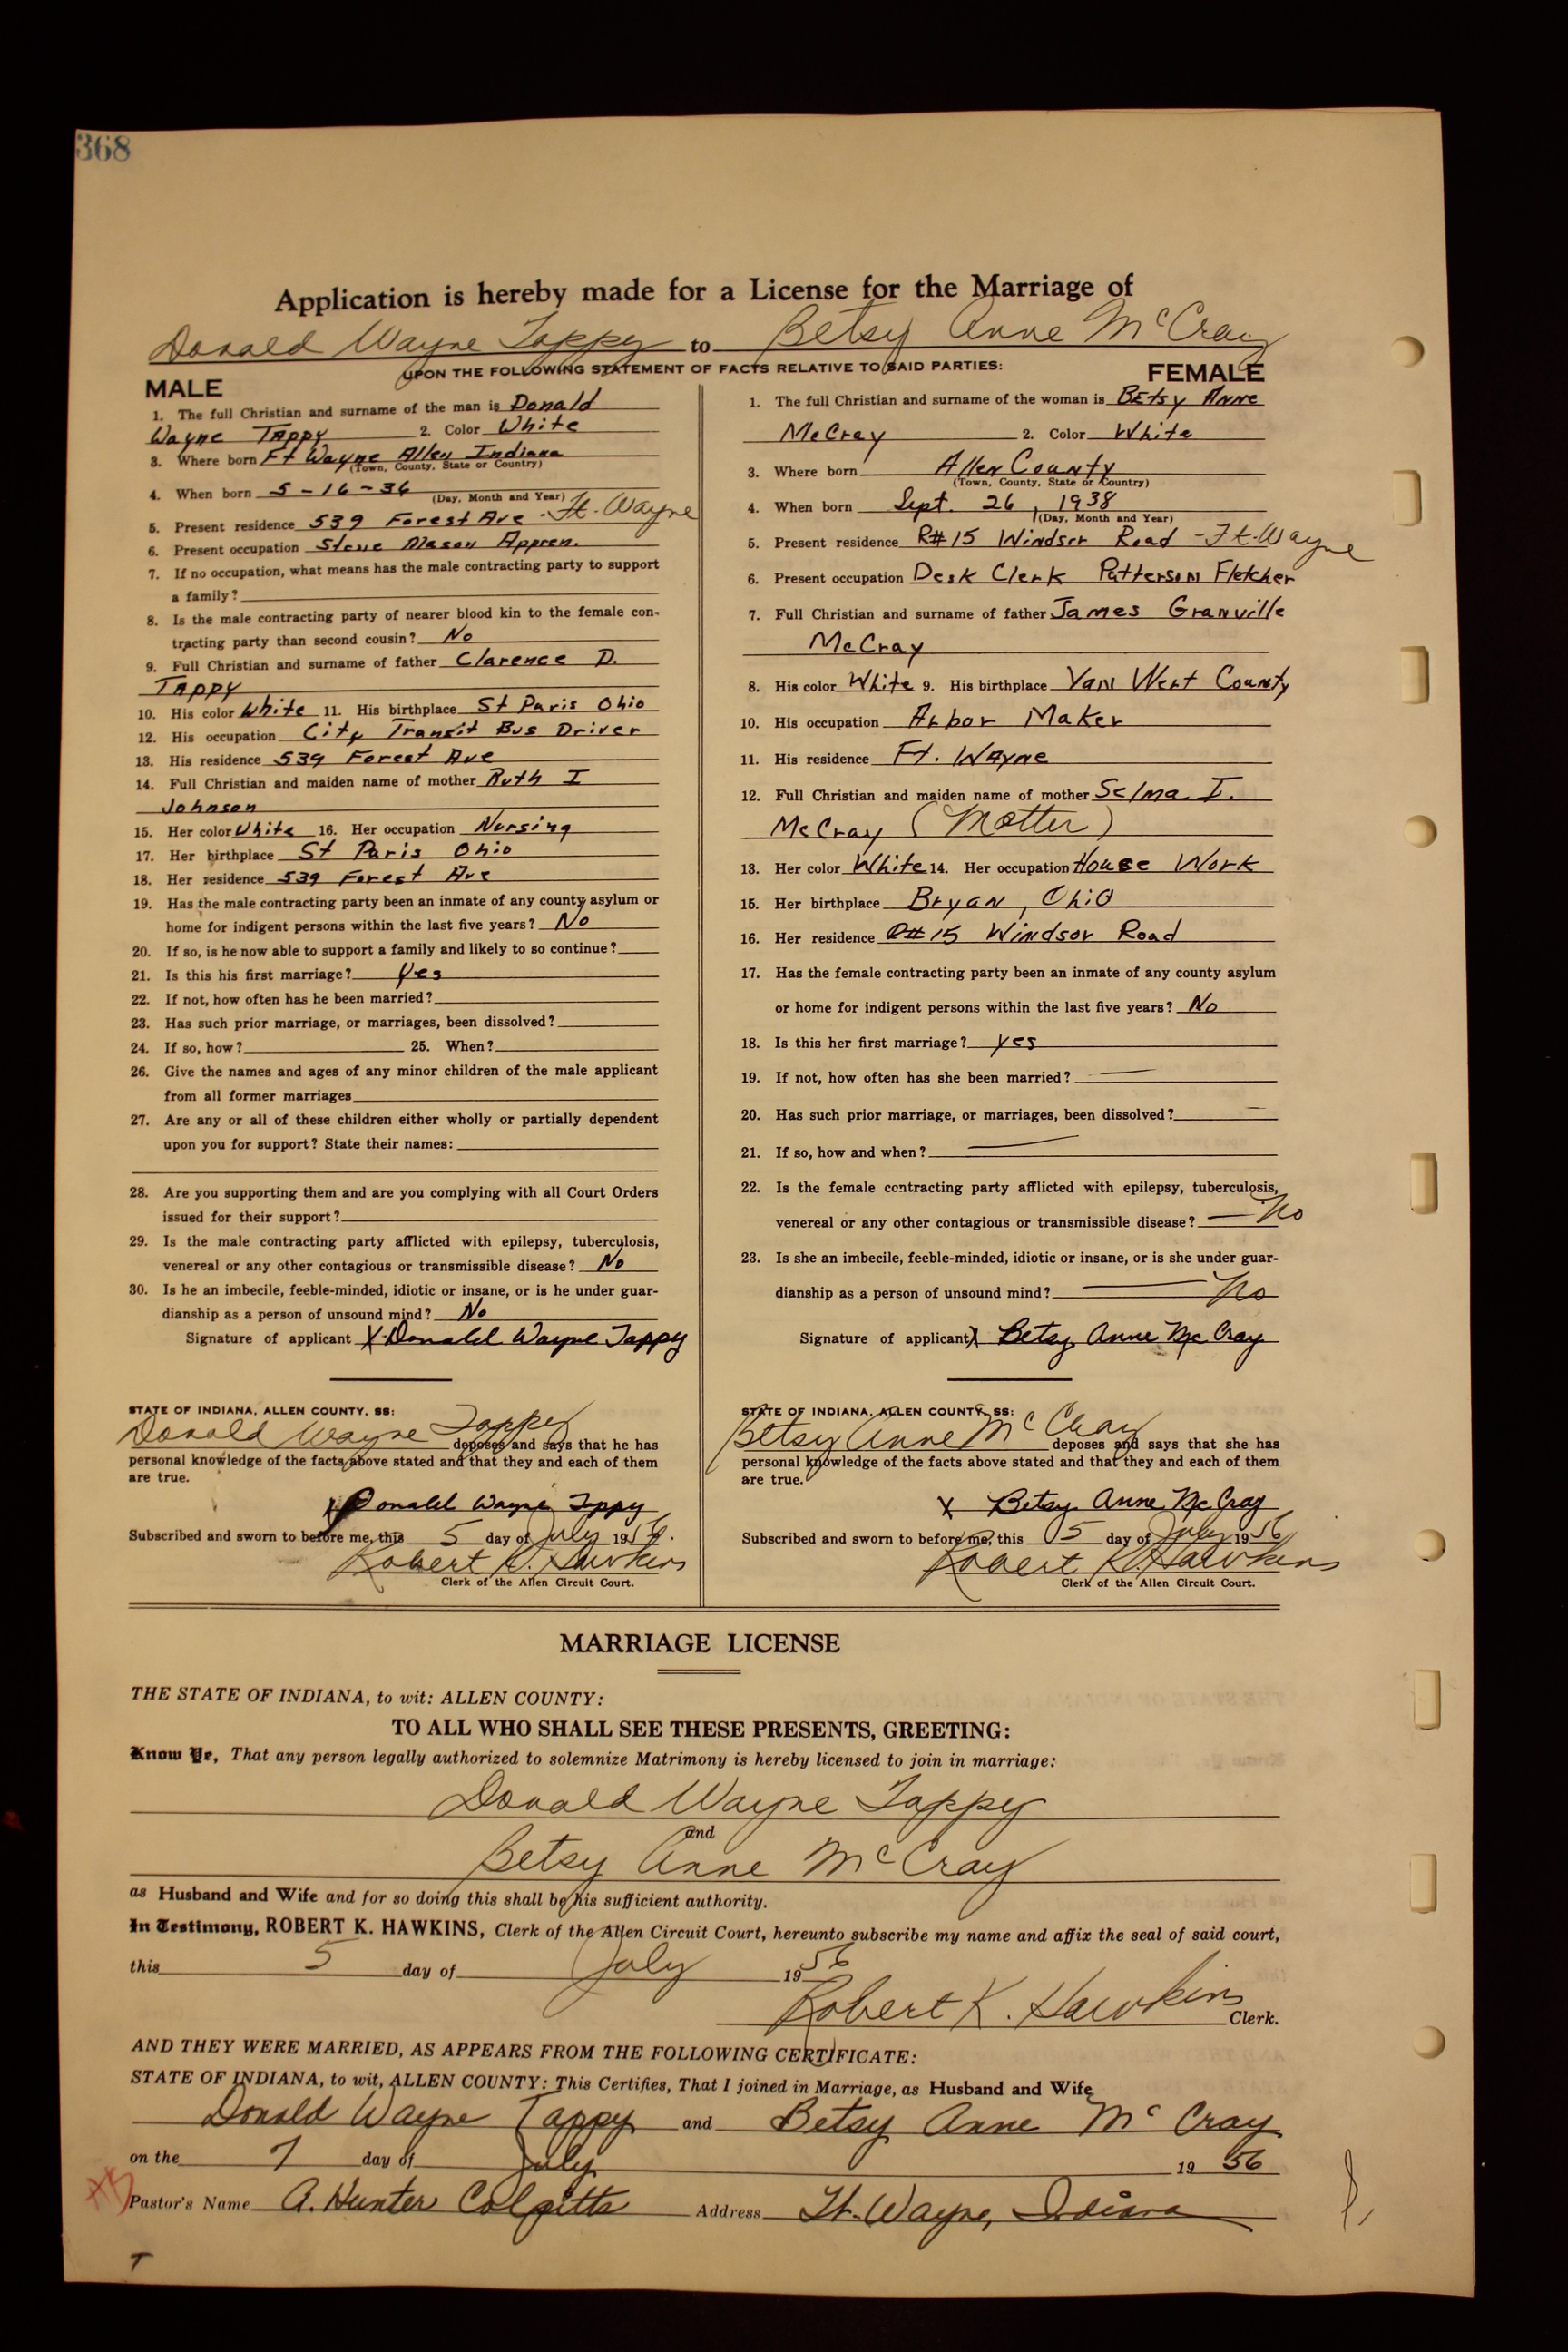 368
Application is hereby made for a License for the Marriage of
Donald Wayne Tappy to Betsy Anne McCray
UPON THE FOLLOWING STATEMENT OF FACTS RELATIVE TO SAID PARTIES:
MALE
1. The full Christian and surname of the man is Donald
Wayne Tappy 2. Color White
3. Where born Ft Wayne Allen Indiana
(Town, County, State or Country)
4. When born 5-16-36
(Day, Month and Year)
5. Present residence 539 Forest Ave - Ft. Wayne
6. Present occupation Stone Mason Appren.
7. If no occupation, what means has the male contracting party to support
a family?
8. Is the male contracting party of nearer blood kin to the female con-
tracting party than second cousin? No
9. Full Christian and surname of father Clarence D.
Tappy
10. His color White 11. His birthplace St Paris Ohio
12. His occupation City Transit Bus Driver
13. His residence 539 Forest Ave
14. Full Christian and maiden name of mother Ruth I
Johnson
15. Her color White 16. Her occupation Nursing
17. Her birthplace St Paris Ohio
18. Her residence 539 Forest Ave
19. Has the male contracting party been an inmate of any county asylum or
home for indigent persons within the last five years? No
20. If so, is he now able to support a family and likely to so continue?
21. Is this his first marriage? Yes
22. If not, how often has he been married?
23. Has such prior marriage, or marriages, been dissolved?
24. If so, how? 25. When?
26. Give the names and ages of any minor children of the male applicant
from all former marriages
27. Are any or all of these children either wholly or partially dependent
upon you for support? State their names:
28. Are you supporting them and are you complying with all Court Orders
issued for their support?
29. Is the male contracting party afflicted with epilepsy, tuberculosis,
venereal or any other contagious or transmissible disease? No
30. Is he an imbecile, feeble-minded, idiotic or insane, or is he under guar-
dianship as a person of unsound mind? No
Signature of applicant X Donald Wayne Tappy
STATE OF INDIANA, ALLEN COUNTY, SS:
Donald Wayne Tappy deposes and says that he has
personal knowledge of the facts above stated and that they and each of them
are true.
X Donald Wayne Tappy
Subscribed and sworn to before me, this 5 day of July 1956.
Robert K. Hawkins
Clerk of the Allen Circuit Court.
FEMALE
1. The full Christian and surname of the woman is Betsy Anne
McCray 2. Color White
3. Where born Allen County
(Town, County, State or Country)
4. When born Sept. 26, 1938
(Day, Month and Year)
5. Present residence R#15 Windsor Road - Ft. Wayne
6. Present occupation Desk Clerk Patterson Fletcher
7. Full Christian and surname of father James Granville
McCray
8. His color White 9. His birthplace Van Wert County
10. His occupation Arbor Maker
11. His residence Ft. Wayne
12. Full Christian and maiden name of mother Selma I.
McCray (Motter)
13. Her color White 14. Her occupation House Work
15. Her birthplace Bryan, Ohio
16. Her residence R#15 Windsor Road
17. Has the female contracting party been an inmate of any county asylum
or home for indigent persons within the last five years? No
18. Is this her first marriage? yes
19. If not, how often has she been married? —
20. Has such prior marriage, or marriages, been dissolved? —
21. If so, how and when? —
22. Is the female contracting party afflicted with epilepsy, tuberculosis,
venereal or any other contagious or transmissible disease? — No
23. Is she an imbecile, feeble-minded, idiotic or insane, or is she under guar-
dianship as a person of unsound mind? — No
Signature of applicant X Betsy Anne McCray
STATE OF INDIANA, ALLEN COUNTY, SS:
Betsy Anne McCray deposes and says that she has
personal knowledge of the facts above stated and that they and each of them
are true.
X Betsy Anne McCray
Subscribed and sworn to before me, this 5 day of July 1956
Robert K. Hawkins
Clerk of the Allen Circuit Court.
MARRIAGE LICENSE
THE STATE OF INDIANA, to wit: ALLEN COUNTY:
TO ALL WHO SHALL SEE THESE PRESENTS, GREETING:
Know Ye, That any person legally authorized to solemnize Matrimony is hereby licensed to join in marriage:
Donald Wayne Tappy
and
Betsy Anne McCray
as Husband and Wife and for so doing this shall be his sufficient authority.
In Testimony, ROBERT K. HAWKINS, Clerk of the Allen Circuit Court, hereunto subscribe my name and affix the seal of said court,
this 5 day of July 1956
Robert K. Hawkins Clerk.
AND THEY WERE MARRIED, AS APPEARS FROM THE FOLLOWING CERTIFICATE:
STATE OF INDIANA, to wit, ALLEN COUNTY: This Certifies, That I joined in Marriage, as Husband and Wife
Donald Wayne Tappy and Betsy Anne McCray
on the 7 day of July 1956
Pastor's Name A. Hunter Colpitts Address Ft. Wayne, Indiana
T